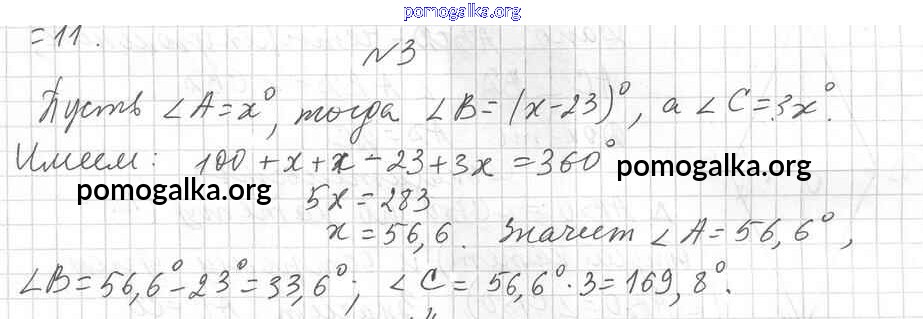 pomogalka.org
=11.
№3
Пусть ∠A=x°, тогда ∠B=(x-23)°, а ∠C=3x°.
Имеем: 100+x+x-23+3x=360° pomogalka.org
pomogalka.org 5x=283
x=56,6. Значит ∠A=56,6°,
∠B=56,6°-23°=33,6°; ∠C=56,6°·3=169,8°.